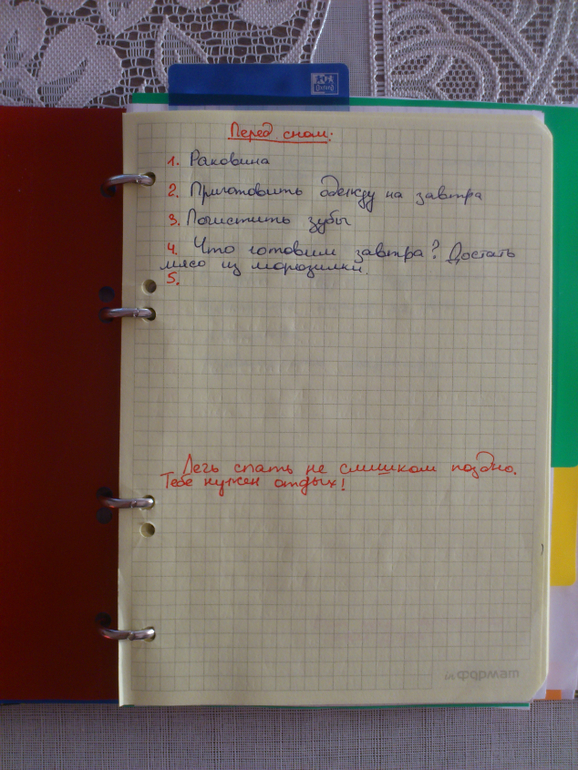 Перед сном:
1. Раковина
2. Приготовить одежду на завтра
3. Почистить зубы
4. Что готовим завтра? Достать
мясо из морозилки.
5.
Лечь спать не слишком поздно.
Тебе нужен отдых!
формат